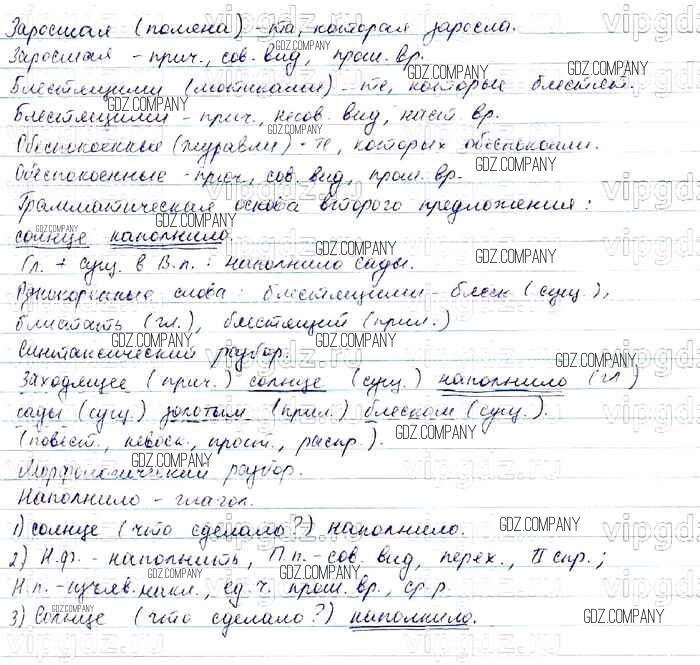 Заросшая (поляна) - та, которая заросла.
Заросшая - прич., сов. вид, прош. вр.
Блестящими (мотиками) - те, которые блестят.
Блестящими - прич., несов. вид, наст. вр.
Обеспокоенные (журавли) - те, которых обеспокоили.
Обеспокоенные - прич., сов. вид, прош. вр.
Грамматическая основа второго предложения:
солнце наполнило.
Гл. + сущ. в В.п.: наполнило сады.
Однокоренные слова: блестящими - блеск (сущ.),
блистать (гл.), блестящий (прил.)
Синтаксический разбор.
Заходящее (прич.) солнце (сущ.) наполнило (гл.)
сады (сущ.) золотым (прил.) блеском (сущ.).
(повест., невоск., прост., распр.).
Морфологический разбор.
Наполнило - глагол.
1) солнце (что сделало?) наполнило.
2) Н.ф. - наполнить, П.п. - сов. вид, перех., II спр.;
Н.п. - изъяв. накл., ед. ч. прош. вр., ср. р.
3) Солнце (что сделало?) наполнило.
GDZ.COMPANY
vipgdz.ru